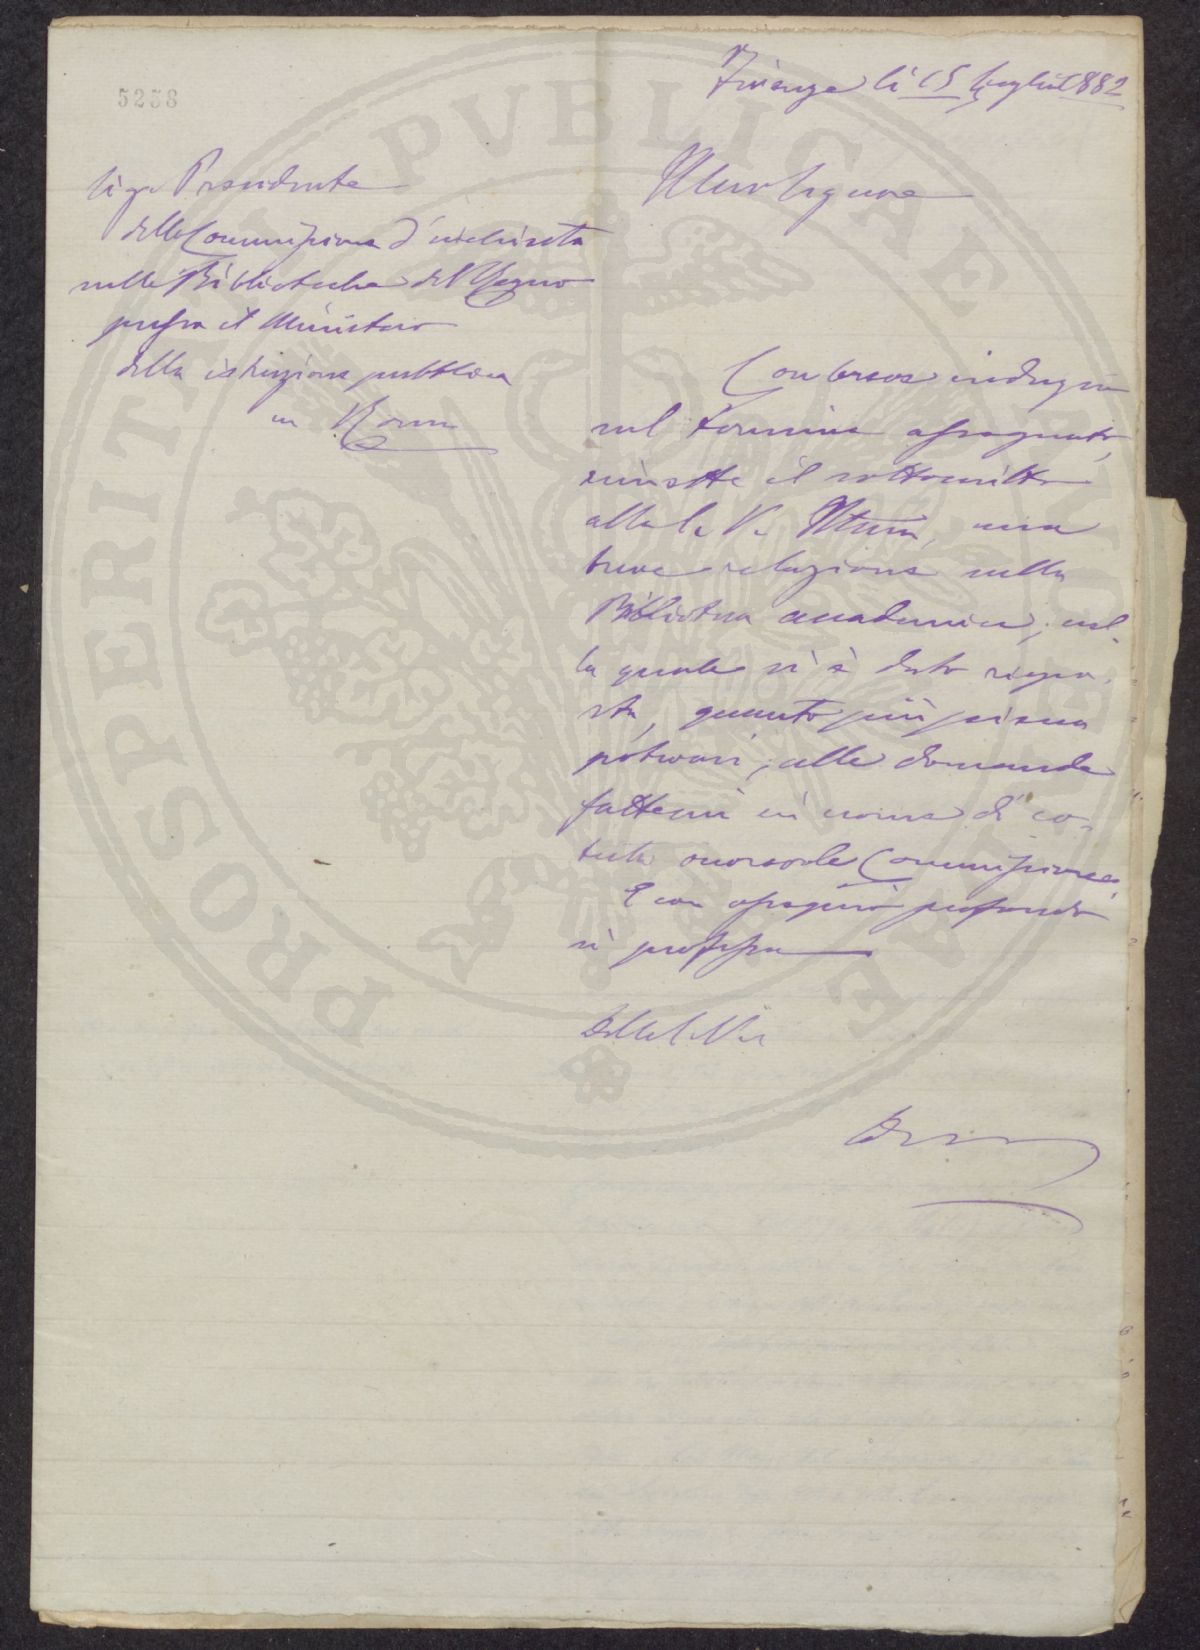 5258
Firenze li 15 Luglio 1882
Sigr Presidente
della Commissione d'inchiesta
sulle Biblioteche del Regno
presso il Ministero
della istruzione pubblica
in Roma
Illmo Signore
Con breve indugio
sul termine assegnato,
rimette il sottoscritto
alla S. V. Illma, una
breve relazione sulla
Biblioteca accademica, nel-
la quale si è dato rispo-
sta, quanto più piena
potevasi, alle domande
fattemi in nome di co-
testa onorevole Commissione.
E con ossequio profondo
si professa
Della S. V.
PVBLICAE
PROSPERITATI